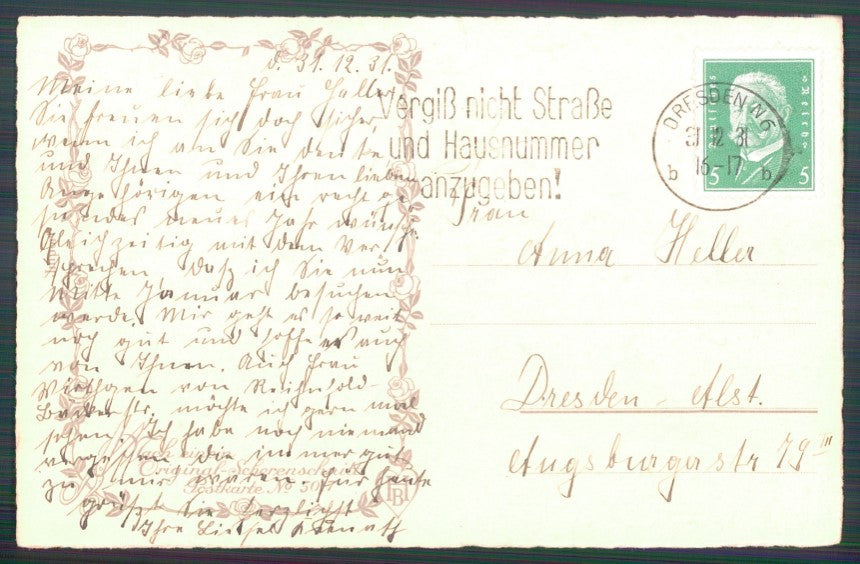 d. 31.12.31.
Meine liebe Frau Heller,
Sie freuen sich doch sicher,
wenn ich an Sie denke
und Ihnen und Ihren lieben
Angehörigen ein recht ge-
sundes neues Jahr wünsche.
Gleichzeitig mit dem Ver-
sprechen, daß ich Sie nun
Mitte Januar besuchen
werde. Mir geht es so weit
noch gut und hoffe es auch
von Ihnen. Auch Frau
von
str. möchte ich gern mal
sehen. Ich habe noch niemand
vergessen die immer gut
zu mir waren. Für heute
grüßt Sie herzlichst
Ihre Liesel
Original-Scherenschnitt
Postkarte No
Vergiß nicht Straße
und Hausnummer
anzugeben!
DRESDEN N6
31 12 31
16-17
b b
Deutsches Reich
5 5
Frau
Anna Heller
Dresden-Alst.
Augsburgerstr 79 III